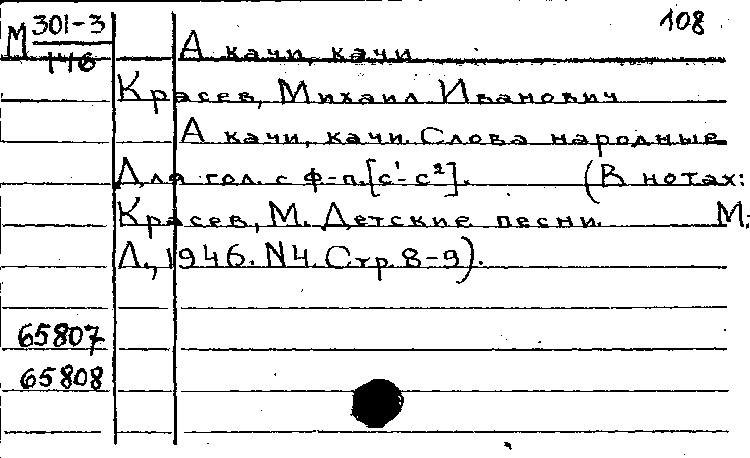 108
М 301-3
146
А качи, качи
Красев, Михаил Иванович
А качи, качи. Слова народные
Для гол. с ф-п. [c¹-c²]. (В нотах:
Красев, М. Детские песни. М;
Л., 1946. N4. Стр. 8-9).
65807
65808